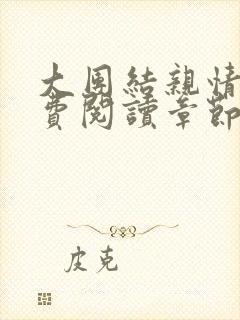 大團結親情
費閱讀章節
皮克